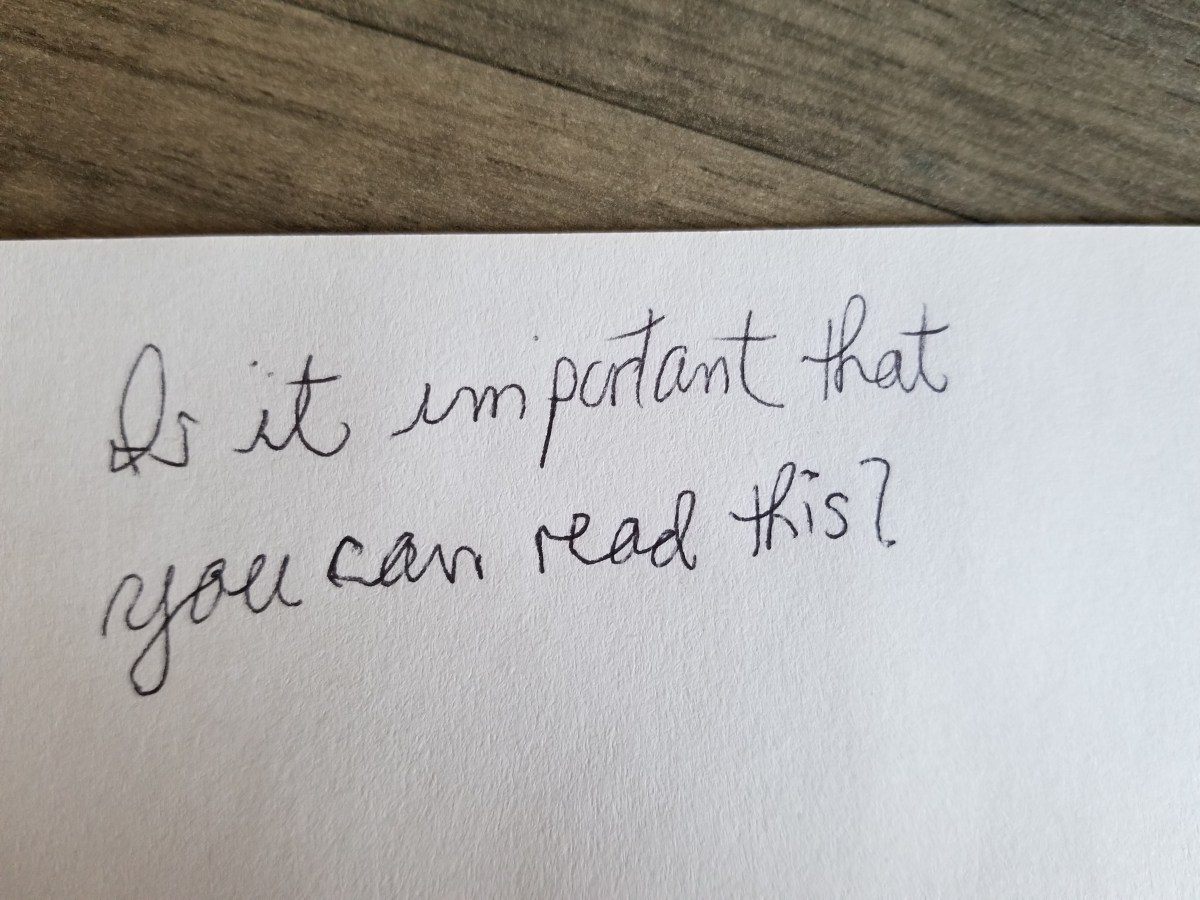 Is it important that
you can read this?